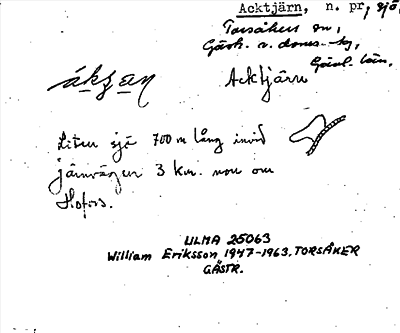 Acktjärn, n. pr, sjö
Torsåkers sn,
Gästr. v. doms-
Gävl. län.
Acktjärn
Liten sjö 700 m lång invid
järnvägen 3 km. nov om
Hofors.
ULMA 25063
William Eriksson 1947-1963, TORSÅKER
GÄSTR.